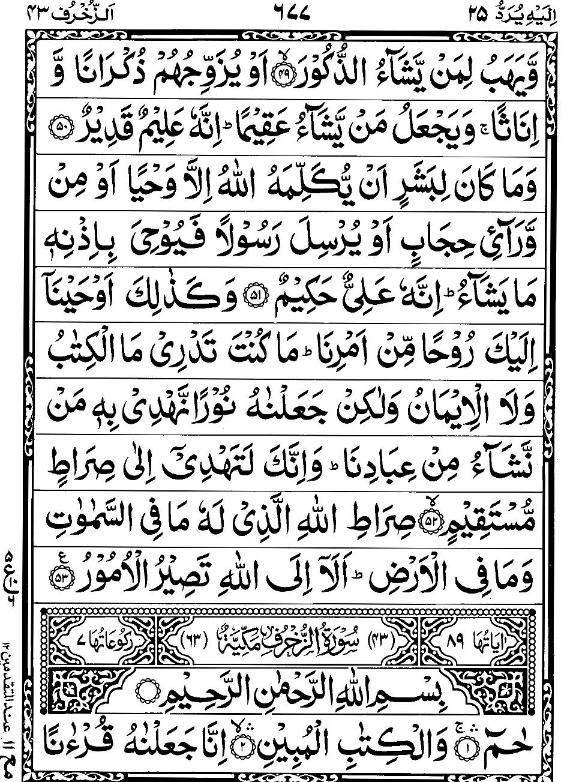 اِلَیْهِ یُرَدُّ ۲۵
٦٧٧
اَلزُّخْرُف ۴۳
وَّیَهَبُ لِمَنْ یَّشَآءُ الذُّكُوْرَ ۙ‏﴿۴۹﴾ اَوْ یُزَوِّجُهُمْ ذُكْرَانًا وَّ
اِنَاثًا ۚ وَیَجْعَلُ مَنْ یَّشَآءُ عَقِیْمًا ؕ اِنَّهٗ عَلِیْمٌ قَدِیْرٌ ﴿۵۰﴾
وَمَا كَانَ لِبَشَرٍ اَنْ یُّكَلِّمَهُ اللّٰهُ اِلَّا وَحْیًا اَوْ مِنْ
وَّرَآئِ حِجَابٍ اَوْ یُرْسِلَ رَسُوْلًا فَیُوْحِیَ بِاِذْنِهٖ
مَا یَشَآءُ ؕ اِنَّهٗ عَلِیٌّ حَكِیْمٌ ﴿۵۱﴾ وَكَذٰلِكَ اَوْحَیْنَاۤ
اِلَیْكَ رُوْحًا مِّنْ اَمْرِنَا ؕ مَا كُنْتَ تَدْرِیْ مَا الْكِتٰبُ
وَلَا الْاِیْمَانُ وَلٰكِنْ جَعَلْنٰهُ نُوْرًا نَّهْدِیْ بِهٖ مَنْ
نَّشَآءُ مِنْ عِبَادِنَا ؕ وَاِنَّكَ لَتَهْدِیْۤ اِلٰی صِرَاطٍ
مُّسْتَقِیْمٍ ۙ﴿۵۲﴾ صِرَاطِ اللّٰهِ الَّذِیْ لَهٗ مَا فِی السَّمٰوٰتِ
وَمَا فِی الْاَرْضِ ؕ اَلَاۤ اِلَی اللّٰهِ تَصِیْرُ الْاُمُوْرُ ﴿۵۳﴾ ع
اٰیَاتُهَا ۸۹ (۴۳) سُوْرَةُ الزُّخْرُفِ مَكِّیَّةٌ (۶۳) رُكُوْعَاتُهَا ۷
بِسْمِ اللّٰهِ الرَّحْمٰنِ الرَّحِیْمِ
حٰمٓ ۚۛ﴿۱﴾ وَالْكِتٰبِ الْمُبِیْنِ ۙۛ﴿۲﴾ اِنَّا جَعَلْنٰهُ قُرْءٰنًا